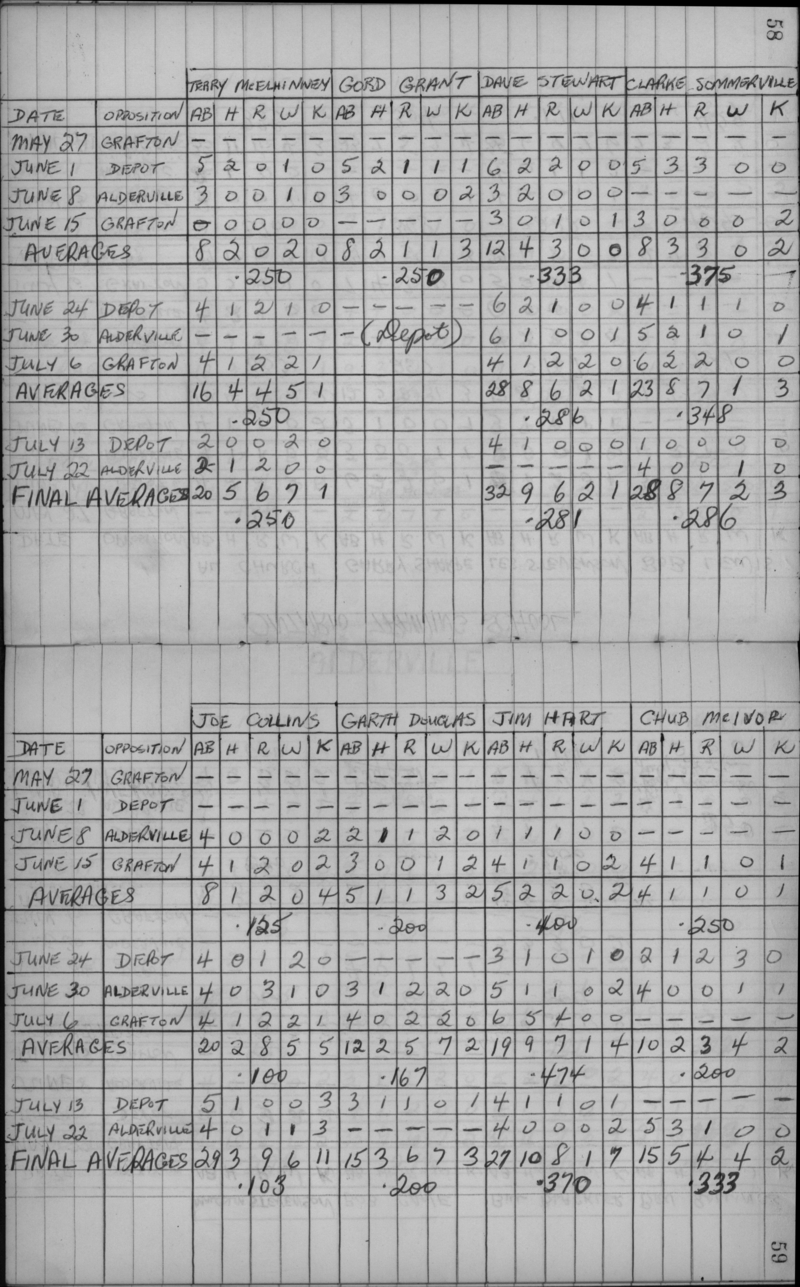 58
TERRY McELHINNEY GORD GRANT DAVE STEWART CLARKE SOMMERVILLE
DATE OPPOSITION AB H R W K AB H R W K AB H R W K AB H R W K
MAY 27 GRAFTON — — — — — — — — — — — — — — — — — — — —
JUNE 1 DEPOT 5 2 0 1 0 5 2 1 1 1 6 2 2 0 0 5 3 3 0 0
JUNE 8 ALDERVILLE 3 0 0 1 0 3 0 0 0 2 3 2 0 0 0 — — — — —
JUNE 15 GRAFTON 0 0 0 0 0 — — — — — 3 0 1 0 1 3 0 0 0 2
AVERAGES 8 2 0 2 0 8 2 1 1 3 12 4 3 0 0 8 3 3 0 2
.250 .250 .333 .375
JUNE 24 DEPOT 4 1 2 1 0 — — — — — 6 2 1 0 0 4 1 1 1 0
JUNE 30 ALDERVILLE — — — — — — (Depot) 6 1 0 0 1 5 2 1 0 1
JULY 6 GRAFTON 4 1 2 2 1 4 1 2 2 0 6 2 2 0 0
AVERAGES 16 4 4 5 1 28 8 6 2 1 23 8 7 1 3
.250 .286 .348
JULY 13 DEPOT 2 0 0 2 0 4 1 0 0 0 1 0 0 0 0
JULY 22 ALDERVILLE 2 1 2 0 0 — — — — — 4 0 0 1 0
FINAL AVERAGES 20 5 6 7 1 32 9 6 2 1 28 8 7 2 3
.250 .281 .286
JOE COLLINS GARTH DOUGLAS JIM HART CHUB McIVOR
DATE OPPOSITION AB H R W K AB H R W K AB H R W K AB H R W K
MAY 27 GRAFTON — — — — — — — — — — — — — — — — — — — —
JUNE 1 DEPOT — — — — — — — — — — — — — — — — — — — —
JUNE 8 ALDERVILLE 4 0 0 0 2 2 1 1 2 0 1 1 1 0 0 — — — — —
JUNE 15 GRAFTON 4 1 2 0 2 3 0 0 1 2 4 1 1 0 2 4 1 1 0 1
AVERAGES 8 1 2 0 4 5 1 1 3 2 5 2 2 0 2 4 1 1 0 1
.125 .200 .400 .250
JUNE 24 DEPOT 4 0 1 2 0 — — — — — 3 1 0 1 0 2 1 2 3 0
JUNE 30 ALDERVILLE 4 0 3 1 0 3 1 2 2 0 5 1 1 0 2 4 0 0 1 1
JULY 6 GRAFTON 4 1 2 2 1 4 0 2 2 0 6 5 4 0 0 — — — — —
AVERAGES 20 2 8 5 5 12 2 5 7 2 19 9 7 1 4 10 2 3 4 2
.100 .167 .474 .200
JULY 13 DEPOT 5 1 0 0 3 3 1 1 0 1 4 1 1 0 1 — — — — —
JULY 22 ALDERVILLE 4 0 1 1 3 — — — — — 4 0 0 0 2 5 3 1 0 0
FINAL AVERAGES 29 3 9 6 11 15 3 6 7 3 27 10 8 1 7 15 5 4 4 2
.103 .200 .370 .333
59